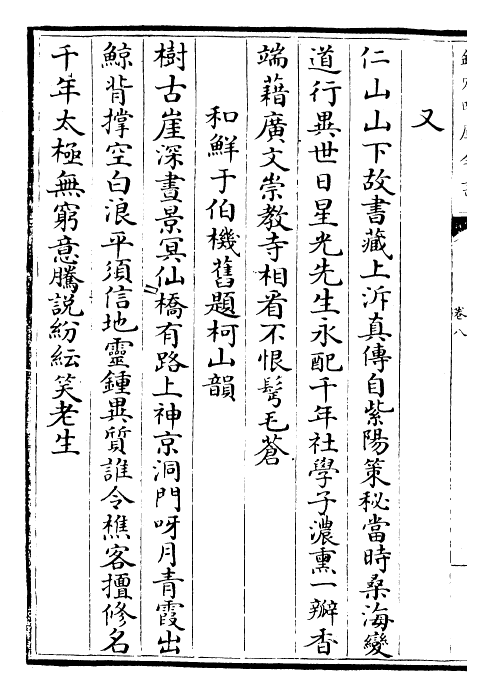 又
仁山山下故書藏上泝真傳自紫陽策秘當時桑海變
道行異世日星光先生永配千年社學子濃熏一瓣香
端藉廣文崇教寺相看不恨鬂毛蒼
和鮮于伯機舊題柯山韻
樹古崖深晝景冥仙橋有路上神京洞門呀月青霞出
鯨背撑空白浪平須信地靈鍾異質誰令樵客擅修名
千年太極無窮意騰説紛紜笑老生
卷八